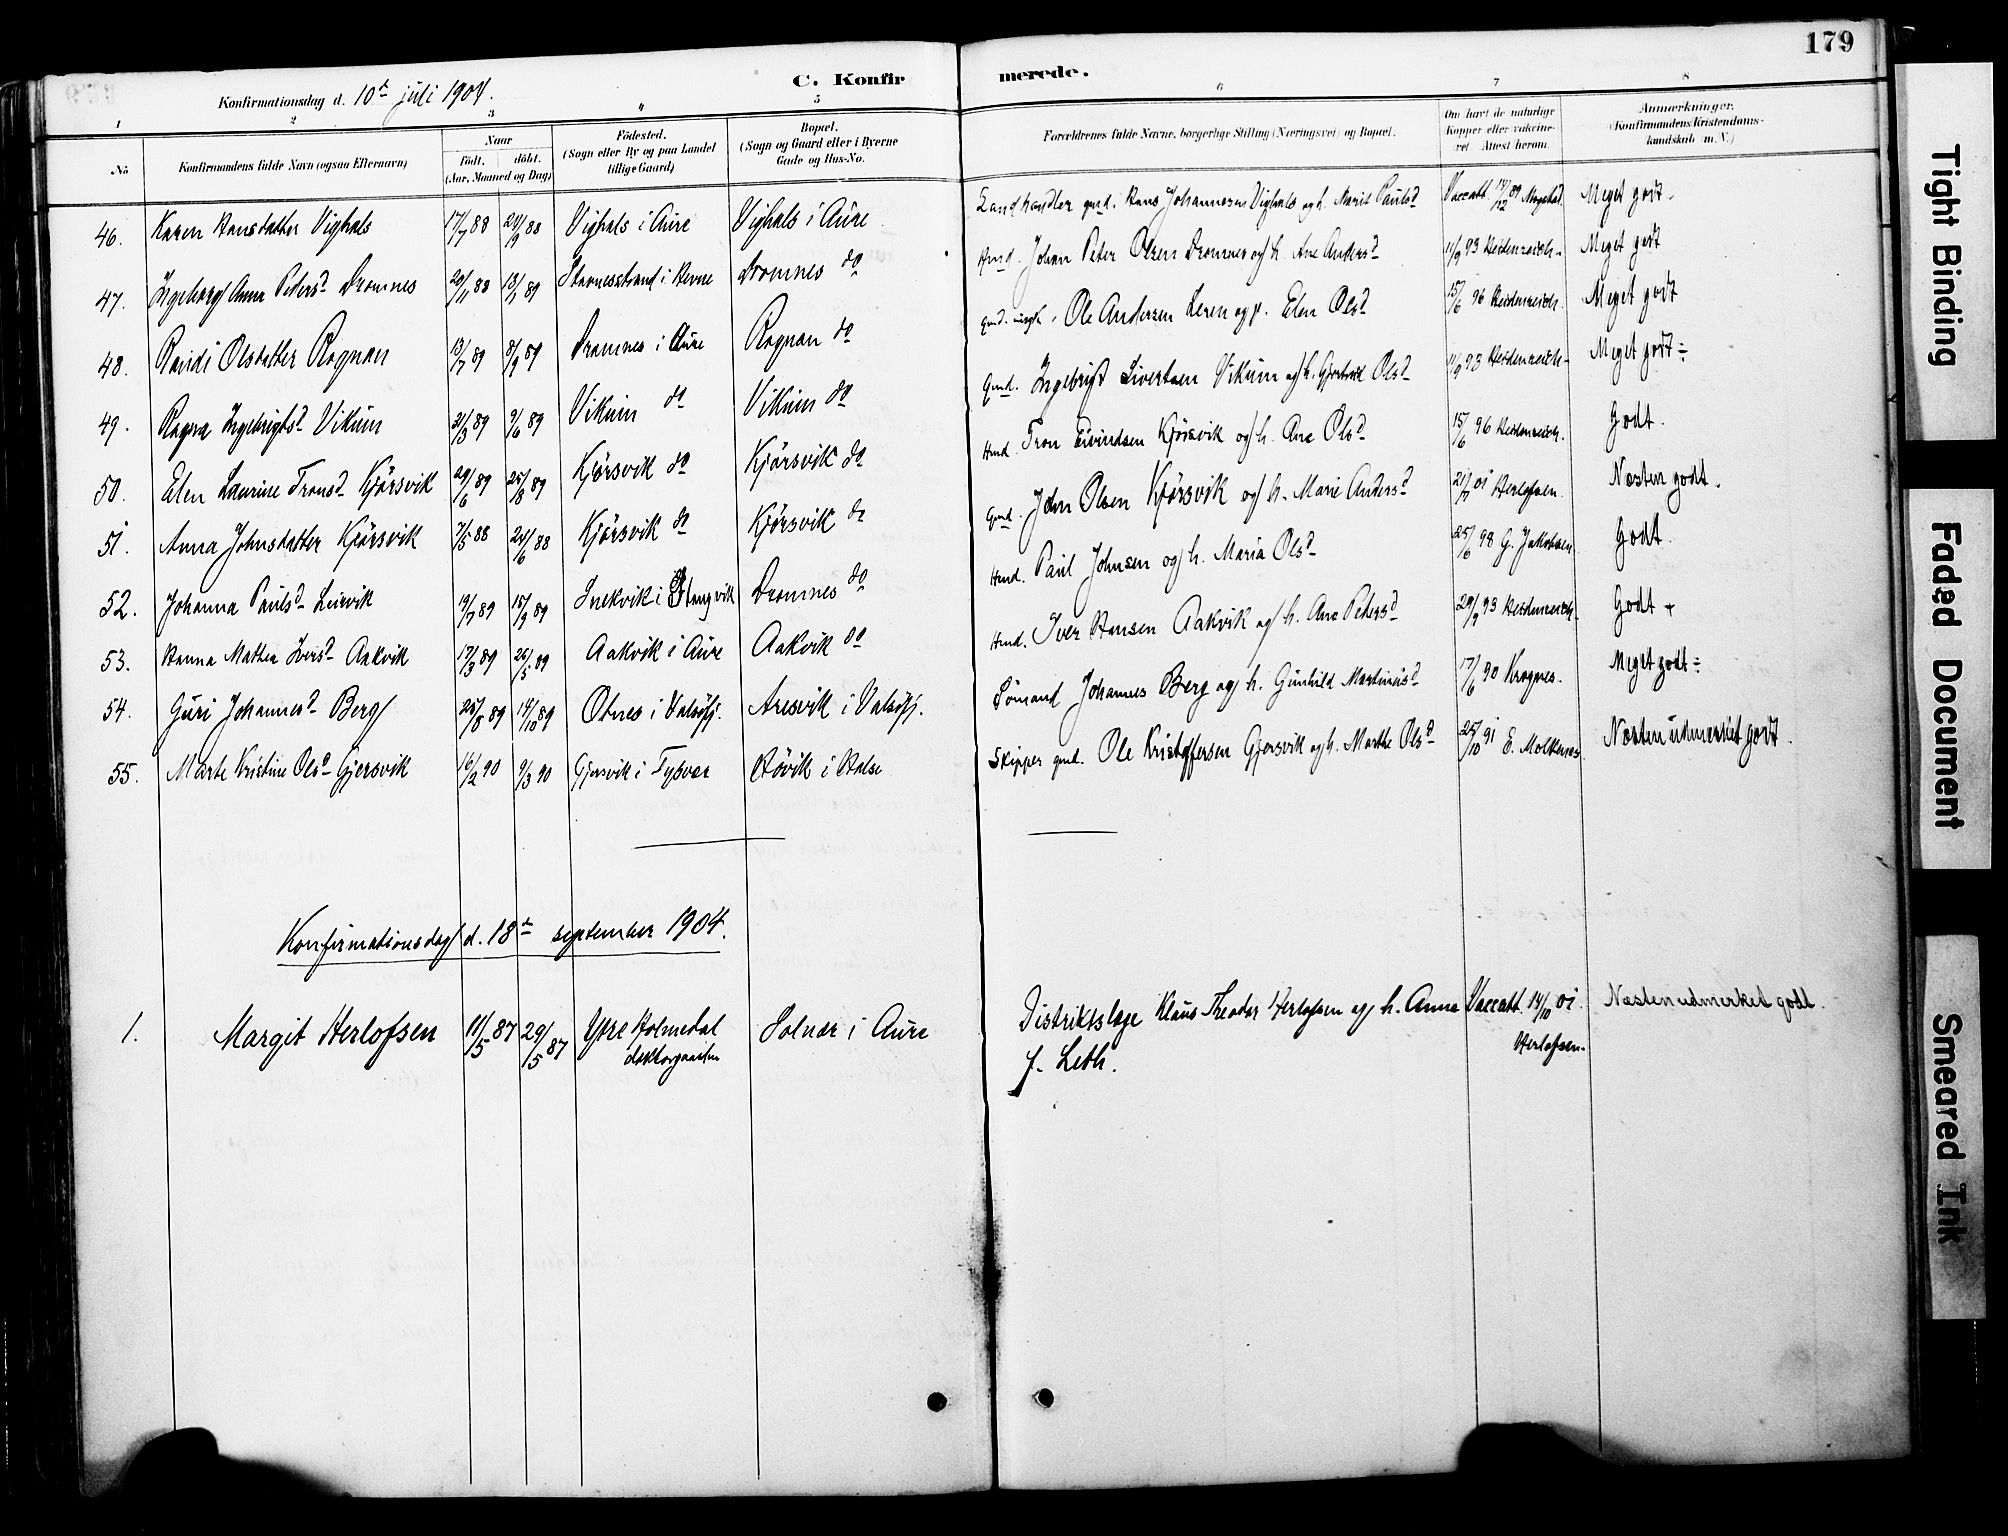 179
C. Konfirmerede.
Konfirmationsdag d. 10de juli 1904.
1 2 3 4 5 6 7 8
No. Konfirmandens fulde Navn (ogsaa Efternavn) Naar født. døbt. (Aar, Maaned og Dag) Fødested. (Sogn eller By og paa Landet tillige Gaard) Bopæl. (Sogn og Gaard eller i Byerne Gade og Hus-No. Forældrenes fulde Navne, borgerlige Stilling (Næringsvei) og Bopæl. Om havt de naturlige Kopper eller vakcineret. Attest herom. Anmærkninger. (Konfirmandens Kristendomskundskab m. V.)
46. Karen Hansdatter Vighals 17/7 88 24/9 88 Vighals i Aure Vighals i Aure Landhandler gmd. Hans Johannesen Vighals og h. Marit Paulsd Vaccatt. 14/12 89 Mogstad Meget godt.
47. Ingeborg Anna Pedersd Dromnes 20/11 88 13/1 89 Stavnesstrand i Hevne Dromnes do Hmd. Johan Peter Olsen Dromnes og h. Ane Andersd 11/9 93 Heidenreich Meget godt
48. Randi Olsdatter Rognan 13/7 89 8/9 89 Dromnes i Aure Rognan do Ole Andersen Leren og p. Elen Olsd 15/6 96 Heidenreich. Meget godt
49. Ragna Ingebrigtsd Vikum 21/3 89 9/6 89 Vikum do Vikum do Gmd. Ingebrigt Sivertsen Vikum og h. Gjertrud Olsd 11/9 93 Heidenreich Meget godt ÷
50. Elen Laurine Tronsd Kjørsvik 29/6 89 25/8 89 Kjørsvik do Kjørsvik do Hmd. Tron Eivindsen Kjørsvik og h. Ane Olsd 15/6 96 Heidenreich. Godt.
51. Anna Johnsdatter Kjørsvik 7/5 88 24/6 88 Kjørsvik do Kjørsvik do Gmd. John Olsen Kjørsvik og h. Marie Andersd 21/7 01 Herlofsen. Næsten godt.
52. Johanna Paulsd Leirvik 19/7 89 15/9 89 Snekvik i Stangvik Dromnes do Hmd. Paul Johnsen og h. Maria Olsd 25/6 98 G. Jakobsen Godt.
53. Hanna Mathea Iversd Aakvik 17/3 89 26/5 89 Aakvik i Aure Aakvik do Hmd. Iver Hansen Aakvik og h. Ane Petersd 29/9 93 Heidenreich. Godt +
54. Guri Johannesd Berg 25/8 89 14/10 89 Otnes i Valsøfj. Aresvik i Valsøfj. Sømand Johannes Berg og h. Gunhild Martinusd 17/6 90 Krognes. Meget godt ÷
55. Marte Kristine Olsd Gjersvik 16/2 90 9/3 90 Gjersvik i Tysvær Røvik i Halse Skipper gmd. Ole Kristoffersen Gjersvik og h. Marthe Olsd 25/10 91 E. Molknes Næsten udmerket godt.
Konfirmationsdag d. 18de september 1904.
1. Margit Herlofsen 11/5 87 29/5 87 Ytre Holmedal Solnær i Aure Distriktslæge Klaus Theodor Herlofsen og h. Anna Vaccatt. 14/10 01 Næsten udmerket godt.
doktorgaarden f. Leth. Herlofsen.
Tight Binding
Faded Document
Smeared Ink